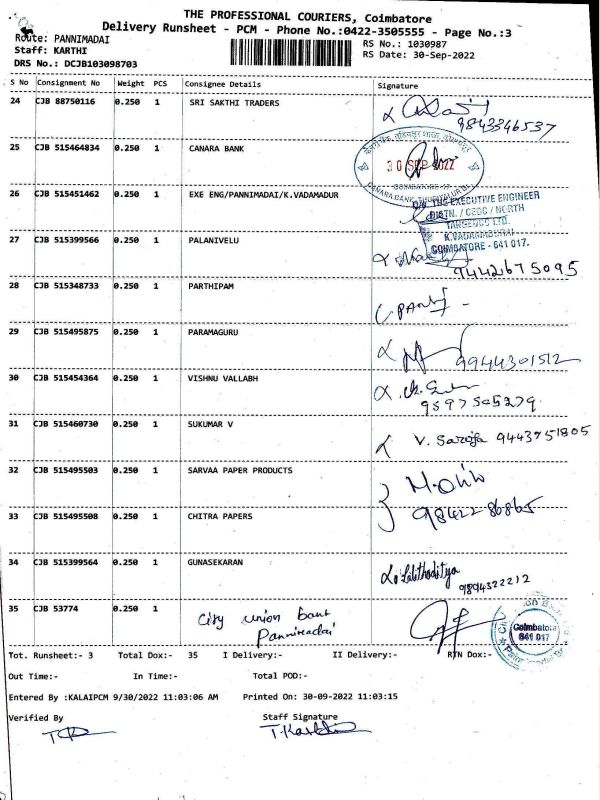 THE PROFESSIONAL COURIERS, Coimbatore
Delivery Runsheet - PCM - Phone No.:0422-3505555 - Page No.:3
Route: PANNIMADAI
Staff: KARTHI
DRS No.: DCJB103098703
RS No.: 1030987
RS Date: 30-Sep-2022
S No Consignment No Weight PCS Consignee Details Signature
24 CJB 88750116 0.250 1 SRI SAKTHI TRADERS
9843346537
25 CJB 515464834 0.250 1 CANARA BANK
30 SEP 2022
26 CJB 515451462 0.250 1 EXE ENG/PANNIMADAI/K.VADAMADUR
O/o THE EXECUTIVE ENGINEER
DISTN. / CEDC / NORTH
TANGEDCO LTD.
K.VADAMADURAI
COIMBATORE - 641 017.
27 CJB 515399566 0.250 1 PALANIVELU
9442675095
28 CJB 515348733 0.250 1 PARTHIPAM
29 CJB 515495875 0.250 1 PARAMAGURU
9944301512
30 CJB 515454364 0.250 1 VISHNU VALLABH
9597505279
31 CJB 515460730 0.250 1 SUKUMAR V
V. Saroja 9443751805
32 CJB 515495503 0.250 1 SARVAA PAPER PRODUCTS
33 CJB 515495508 0.250 1 CHITRA PAPERS
98422 86865
34 CJB 515399564 0.250 1 GUNASEKARAN
Lalithaditya
9894322212
35 CJB 53774 0.250 1 City union bank
Pannimadai
Coimbatore
641 017
Tot. Runsheet:- 3 Total Dox:- 35 I Delivery:- II Delivery:- RTN Dox:-
Out Time:- In Time:- Total POD:-
Entered By :KALAIPCM 9/30/2022 11:03:06 AM Printed On: 30-09-2022 11:03:15
Verified By Staff Signature
T.Karthi